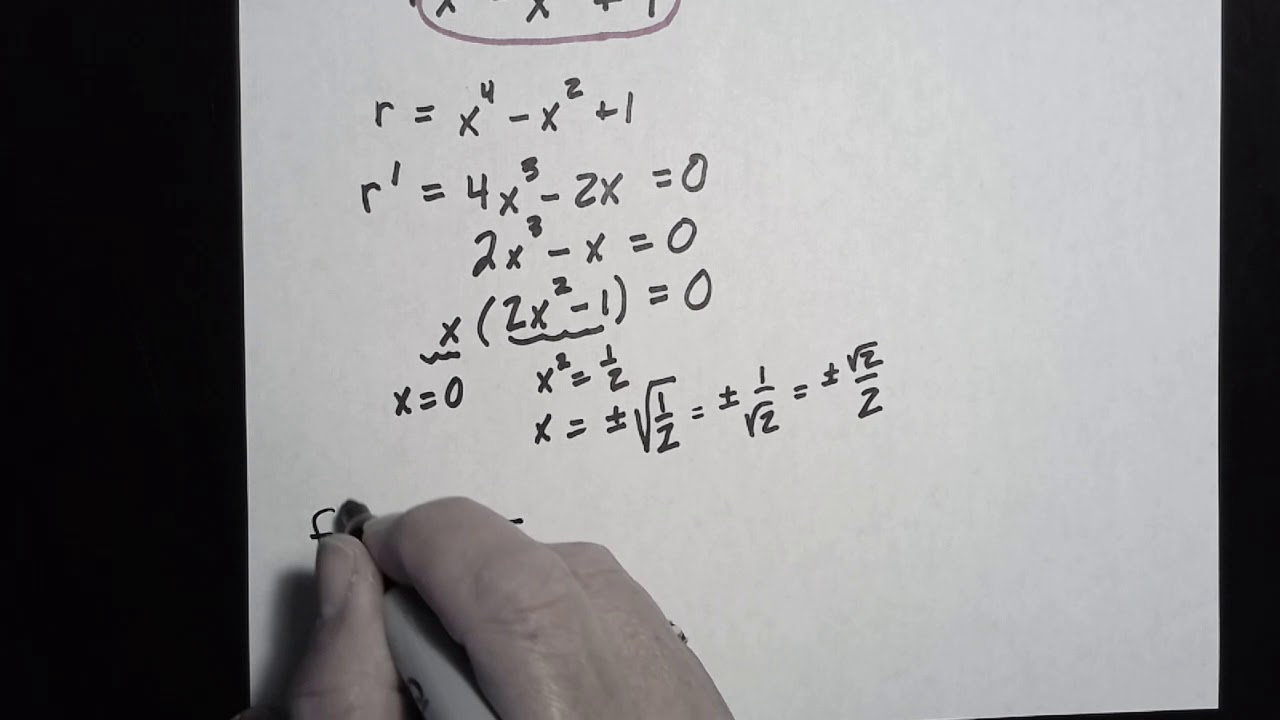 x⁴ - x² + 1
r = x⁴ - x² + 1
r' = 4x³ - 2x = 0
2x³ - x = 0
x (2x² - 1) = 0
x = 0
x² = 1/2
x = ± √(1/2) = ± 1/√2 = ± √2/2